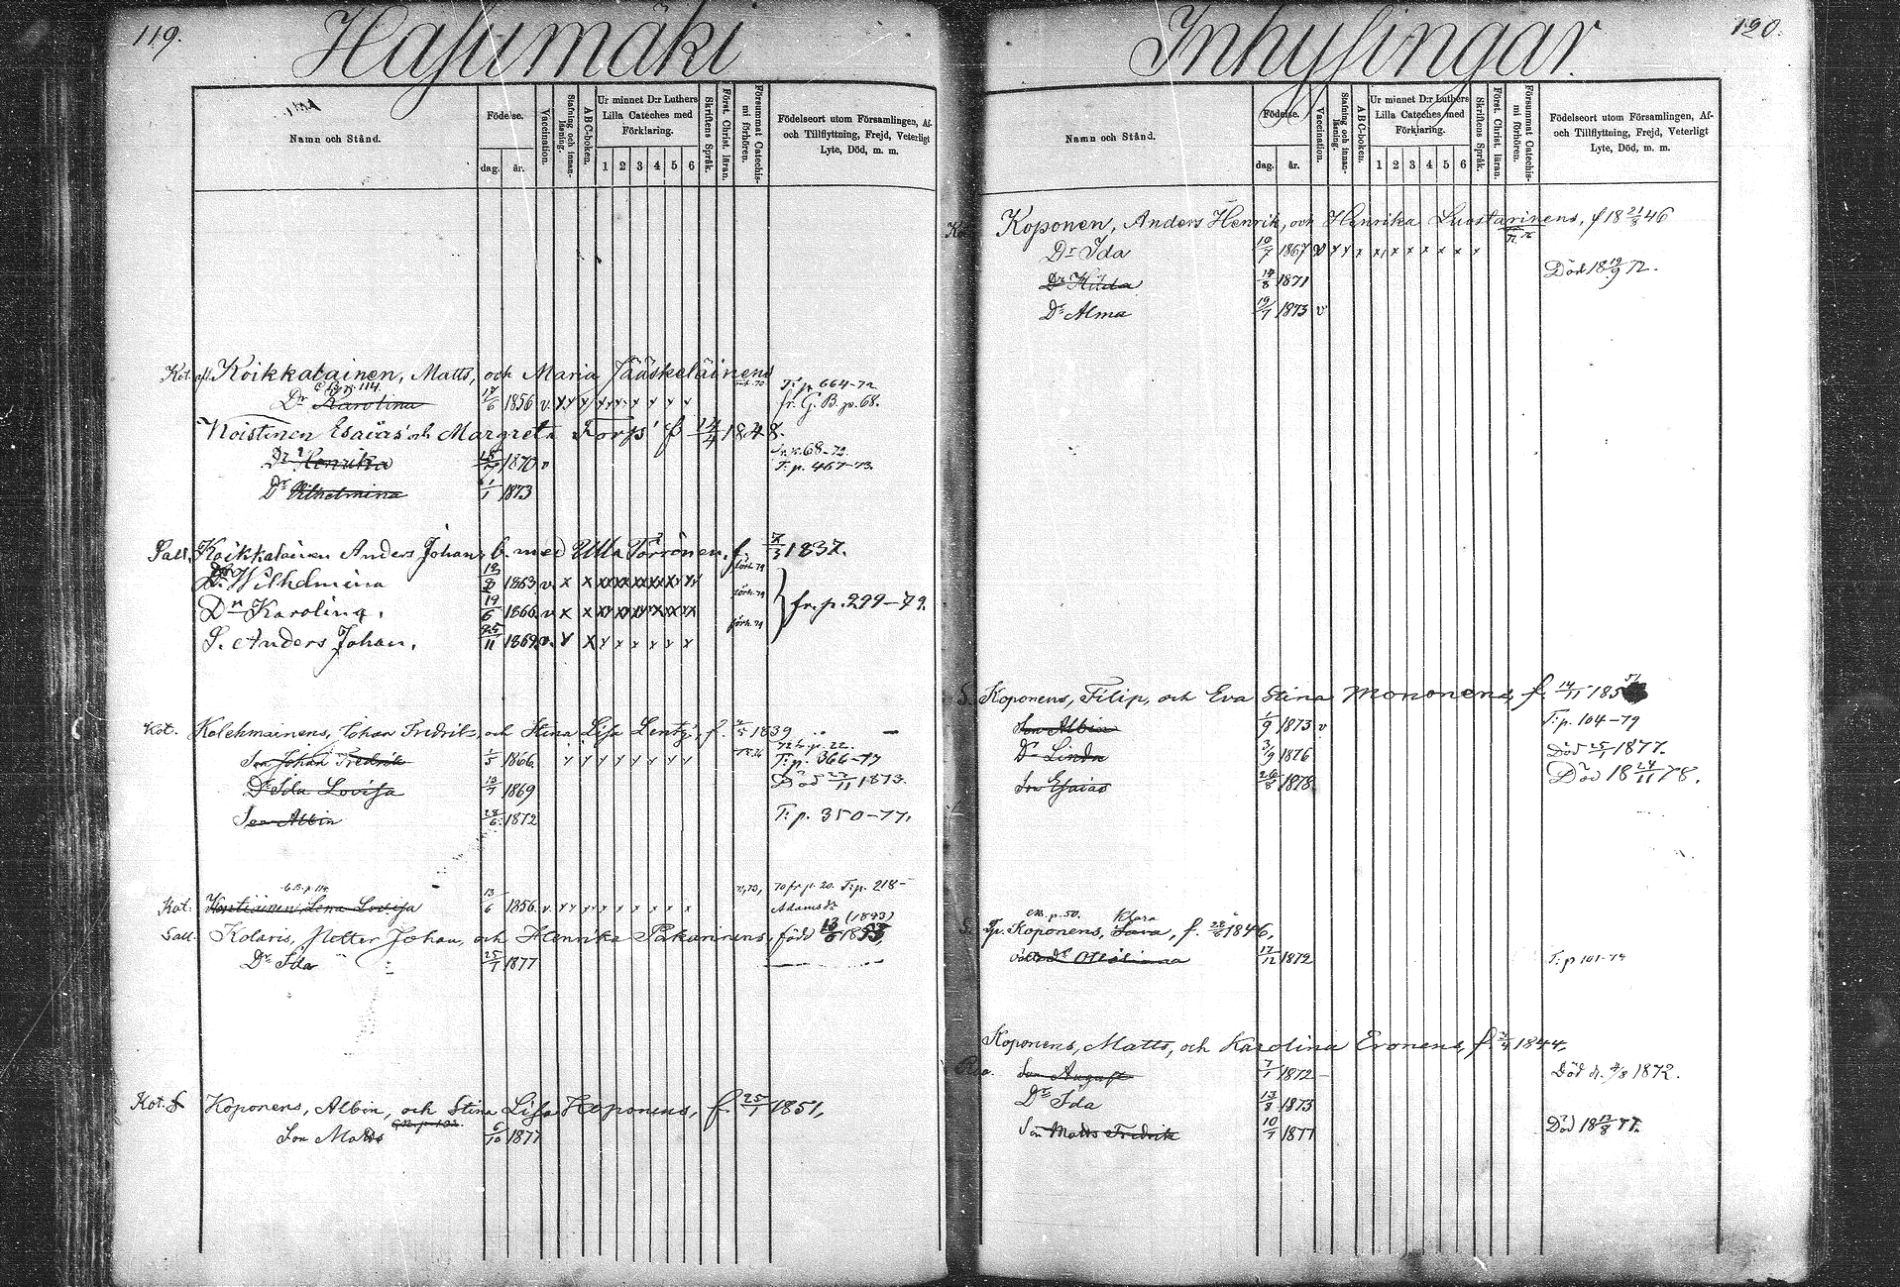 119.
Hasumäki
Namn och Stånd.
Födelse.
dag.
år.
Vaccination.
Stafning och innanläsning.
ABC-boken.
Ur minnet D:r Luthers Lilla Cateches med Förklaring.
1 2 3 4 5 6
Skriftens Språk.
Först. Christ. läran.
Försummat Catechismi förhören.
Födelseort utom Församlingen, Af- och Tillflyttning, Frejd, Veterligt Lyte, Död, m. m.
Kot. Koikkalainen, Matts, och Maria Jääskeläinens
G. B. p. 114.
Dr Karolina 17/6 1856 v. T: p. 664-72
fr. G. B. p. 68.
Noistinen Esaias och Margreta Torps f 14/4 1848.
Dr Henrika 1870 v fr. p. 68-72.
T: p. 467-73.
Dr Wilhelmina 1/1 1873
Sall. Koikkalainen Anders Johan, b. med Ulla Torrönen, f. 7/3 1837.
Dr Wilhelmina 1863 v. x x
Dr Karolina, 19/6 1866 v. x x fr. p. 299-79.
S. Anders Johan, 25/11 1869 v.
Kot. Kolehmainens, Johan Fredrik, och Stina Lisa Lentz, f. 2/5 1839
72 fr. p. 22.
Son Johan Fredrik 1/5 1866 T: p. 366-77
Dr Ida Lovisa 13/7 1869 Död 22/11 1873.
Son Albin 28/6 1872 T: p. 350-77.
G. B. p. 114.
Kot. Kontiainen, Lena Lovisa 13/6 1856 v. 70 fr p. 20. T: p. 218-
(1893)
Sall. Kolaris, Petter Johan, och Henrika Pakarinens, född 13/6 1853.
Dr Ida 25/7 1877
Kot. Koponens, Albin, och Stina Lisa Koponens, f. 25/1 1851,
Son Matts 6/10 1877
120.
Inhysingar.
Namn och Stånd.
Födelse.
dag.
år.
Vaccination.
Stafning och innanläsning.
ABC-boken.
Ur minnet D:r Luthers Lilla Cateches med Förklaring.
1 2 3 4 5 6
Skriftens Språk.
Först. Christ. läran.
Försummat Catechismi förhören.
Födelseort utom Församlingen, Af- och Tillflyttning, Frejd, Veterligt Lyte, Död, m. m.
Koponen, Anders Henrik, och Henrika Luostarinens, f 18 21/8 46
Dr Ida 10/7 1867 v
Dr Hilda 14/8 1871 Död 18 19/9 72.
Dr Alma 19/7 1873 v
S. Koponens, Filip, och Eva Stina Mononens, f. 14/11 185
Son Albin 1/9 1873 v T: p. 104-79
Dr Linda 3/9 1876 Död 25/1 1877.
Son Esaias 26/8 1878 Död 18 24/11 78.
G. B. p. 50. Klara
S. Tp. Koponens, f. 28/6 1846,
oäkta Dr 17/12 1872 T: p 101-78
Koponens, Matts, och Karolina Eronens, f. 2/4 1844.
Son August 7/1 1872 Död d. 2/8 1872.
Dr Ida 13/8 1873
Son Matts Fredrik 10/7 1877 Död 18 12/8 77.